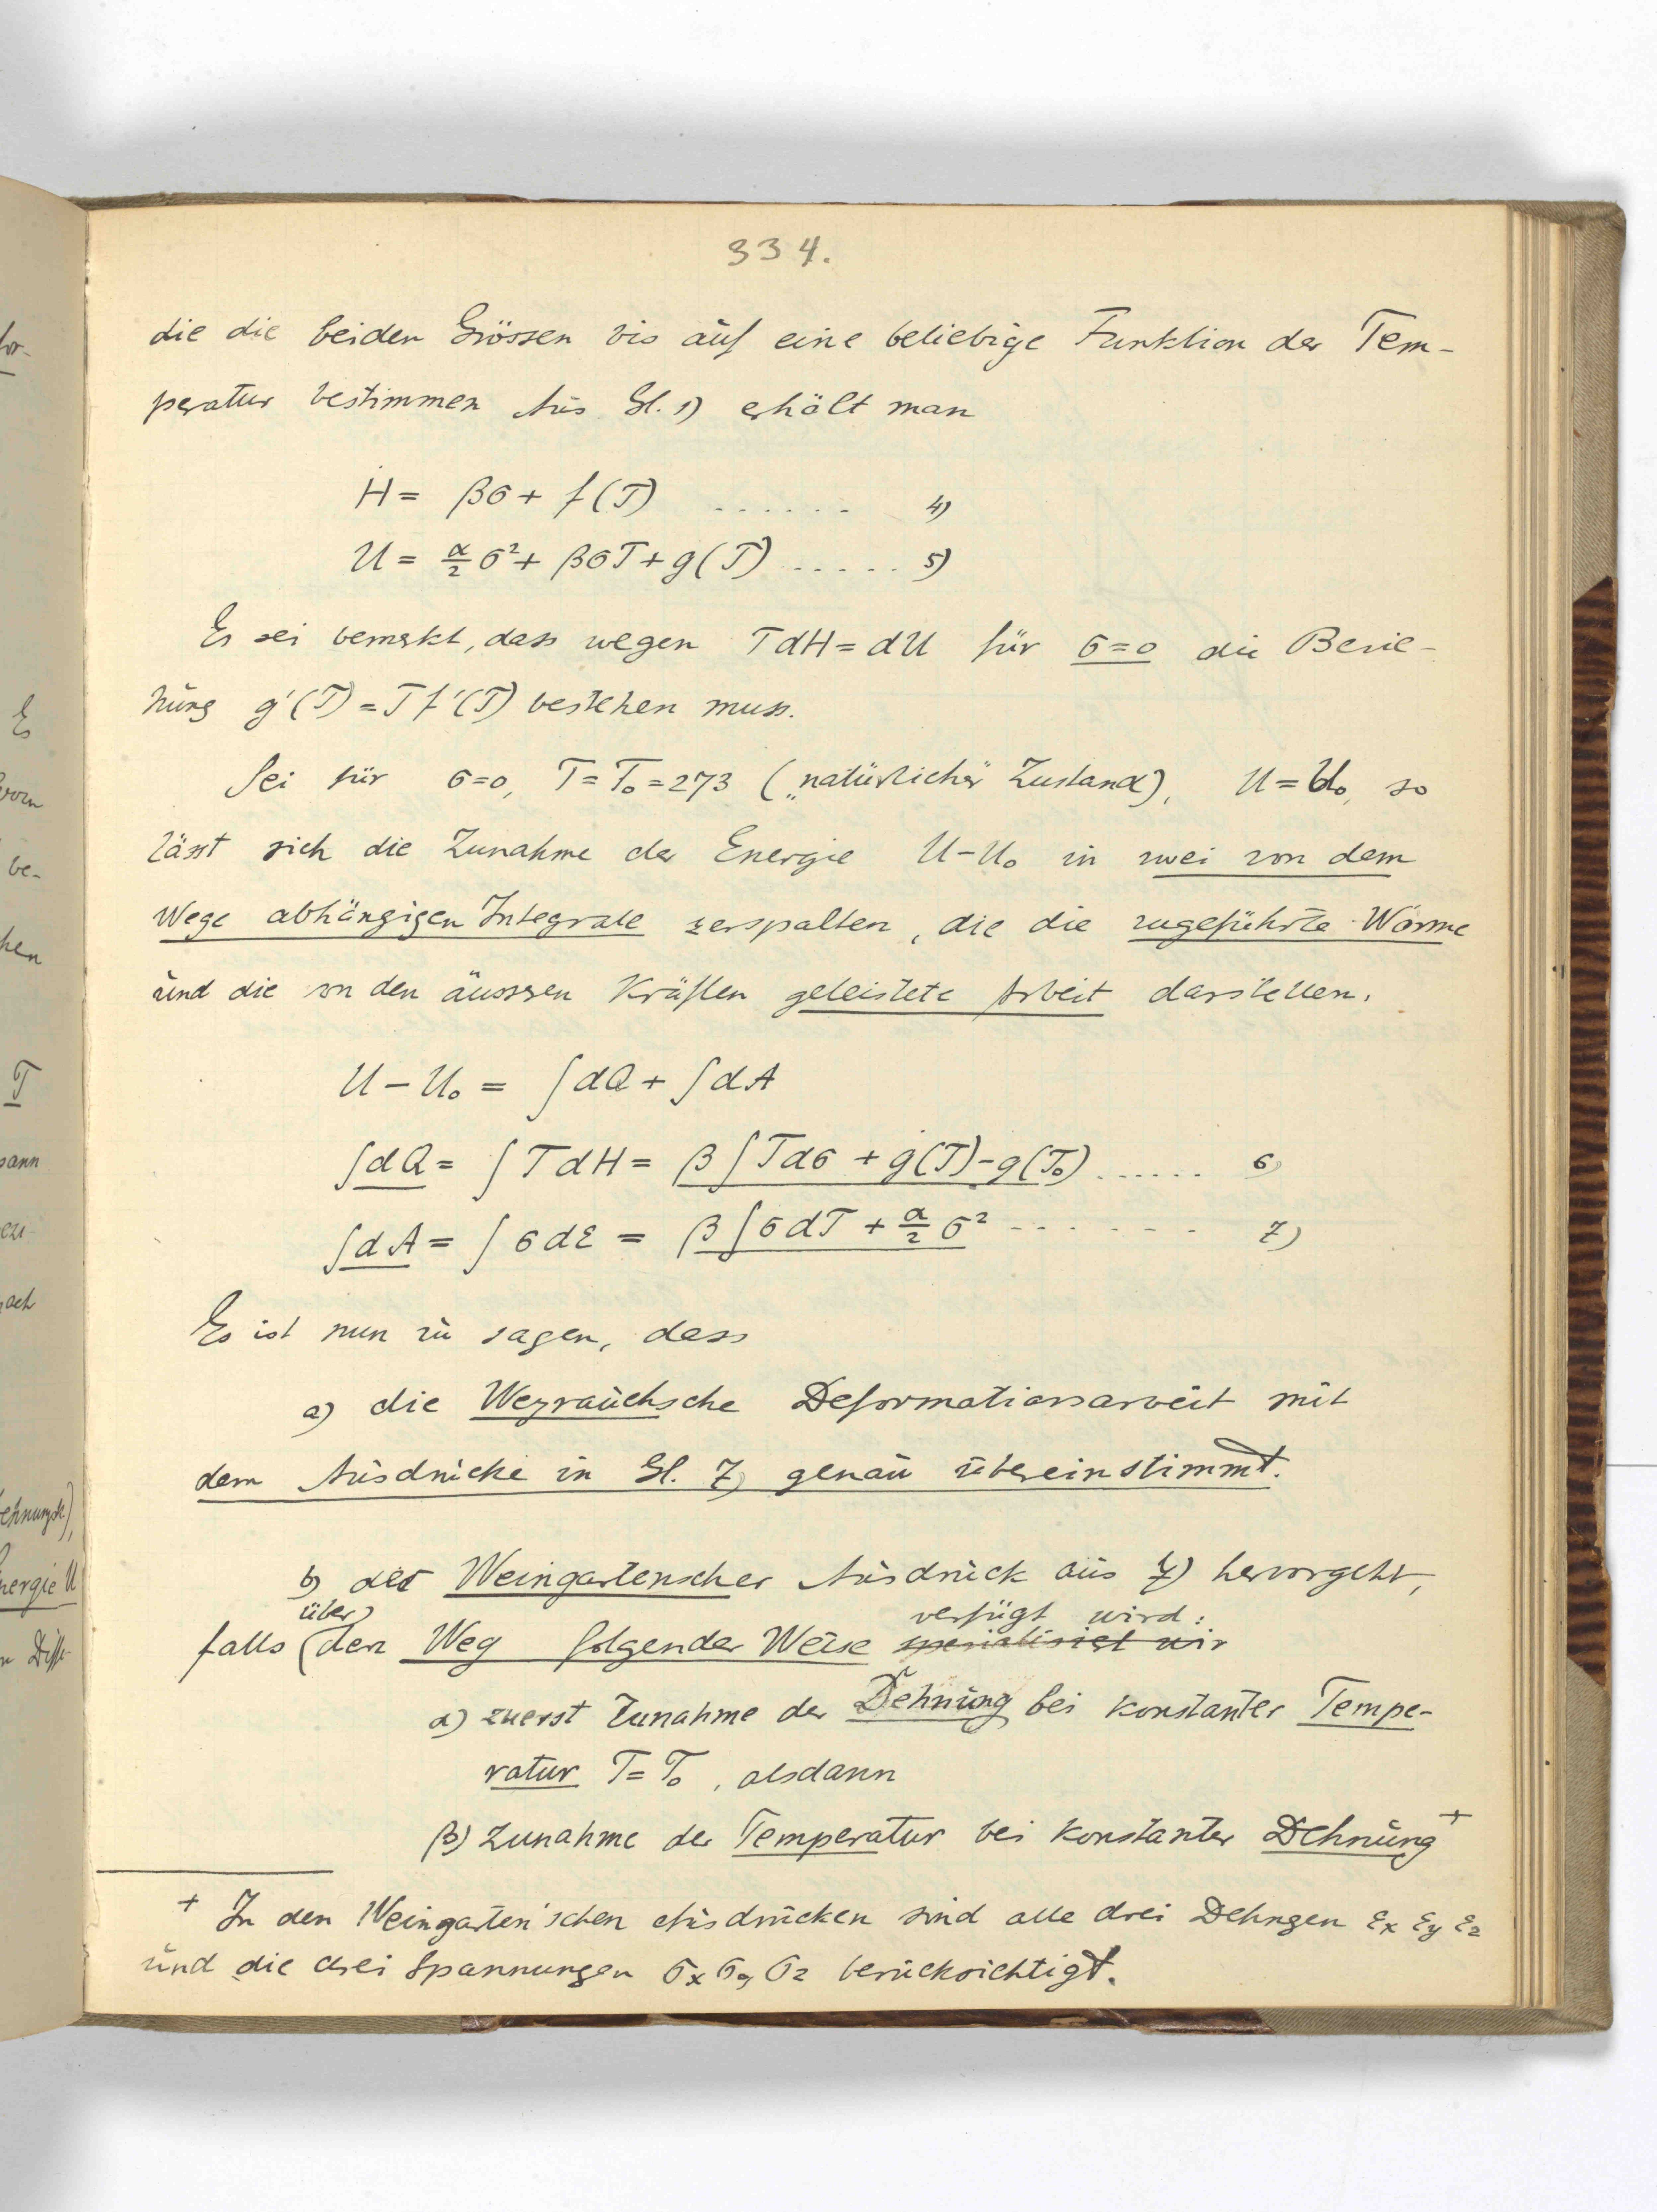 334.
die die beiden Grössen bis auf eine beliebige Funktion der Tem-
peratur bestimmen Aus Gl. 1) erhält man
H = βσ + f(T) . . . . . . 4)
U = α/2 σ² + βσT + g(T) . . . . . 5)
Es sei bemerkt, dass wegen TdH = dU für σ=0 die Bezie-
hung g'(T) = Tf'(T) bestehen muss.
Sei für σ=0, T=T₀=273 („natürlicher" Zustand), U=U₀, so
lässt sich die Zunahme der Energie U-U₀ in zwei von dem
Wege abhängigen Integrale zerspalten, die die zugeführte Wärme
und die von den äusseren Kräften geleistete Arbeit darstellen.
U - U₀ = ∫dQ + ∫dA
∫dQ = ∫TdH = β∫Tdσ + g(T) - g(T₀) . . . . . . 6)
∫dA = ∫σdε = β∫σdT + α/2 σ² . . . . . . . 7)
Es ist nun zu sagen, dass
a) die Weyrauchsche Deformationsarbeit mit
dem Ausdrucke in Gl. 7) genau übereinstimmt.
b) der Weingartenscher Ausdruck aus 7) hervorgeht,
über verfügt wird:
falls (den Weg folgender Weise spezialisiert wir
α) zuerst Zunahme der Dehnung bei konstanter Tempe-
ratur T=T₀, alsdann
β) Zunahme der Temperatur bei konstanter Dehnung +
+ In den Weingarten'schen Ausdrücken sind alle drei Dehngen εx εy εz
und die drei Spannungen σx σy σz berücksichtigt.
fo-
Es
vorn
be-
hen
T
sann
ezi-
nach
ehnungsk),
nergie U
n Diff-